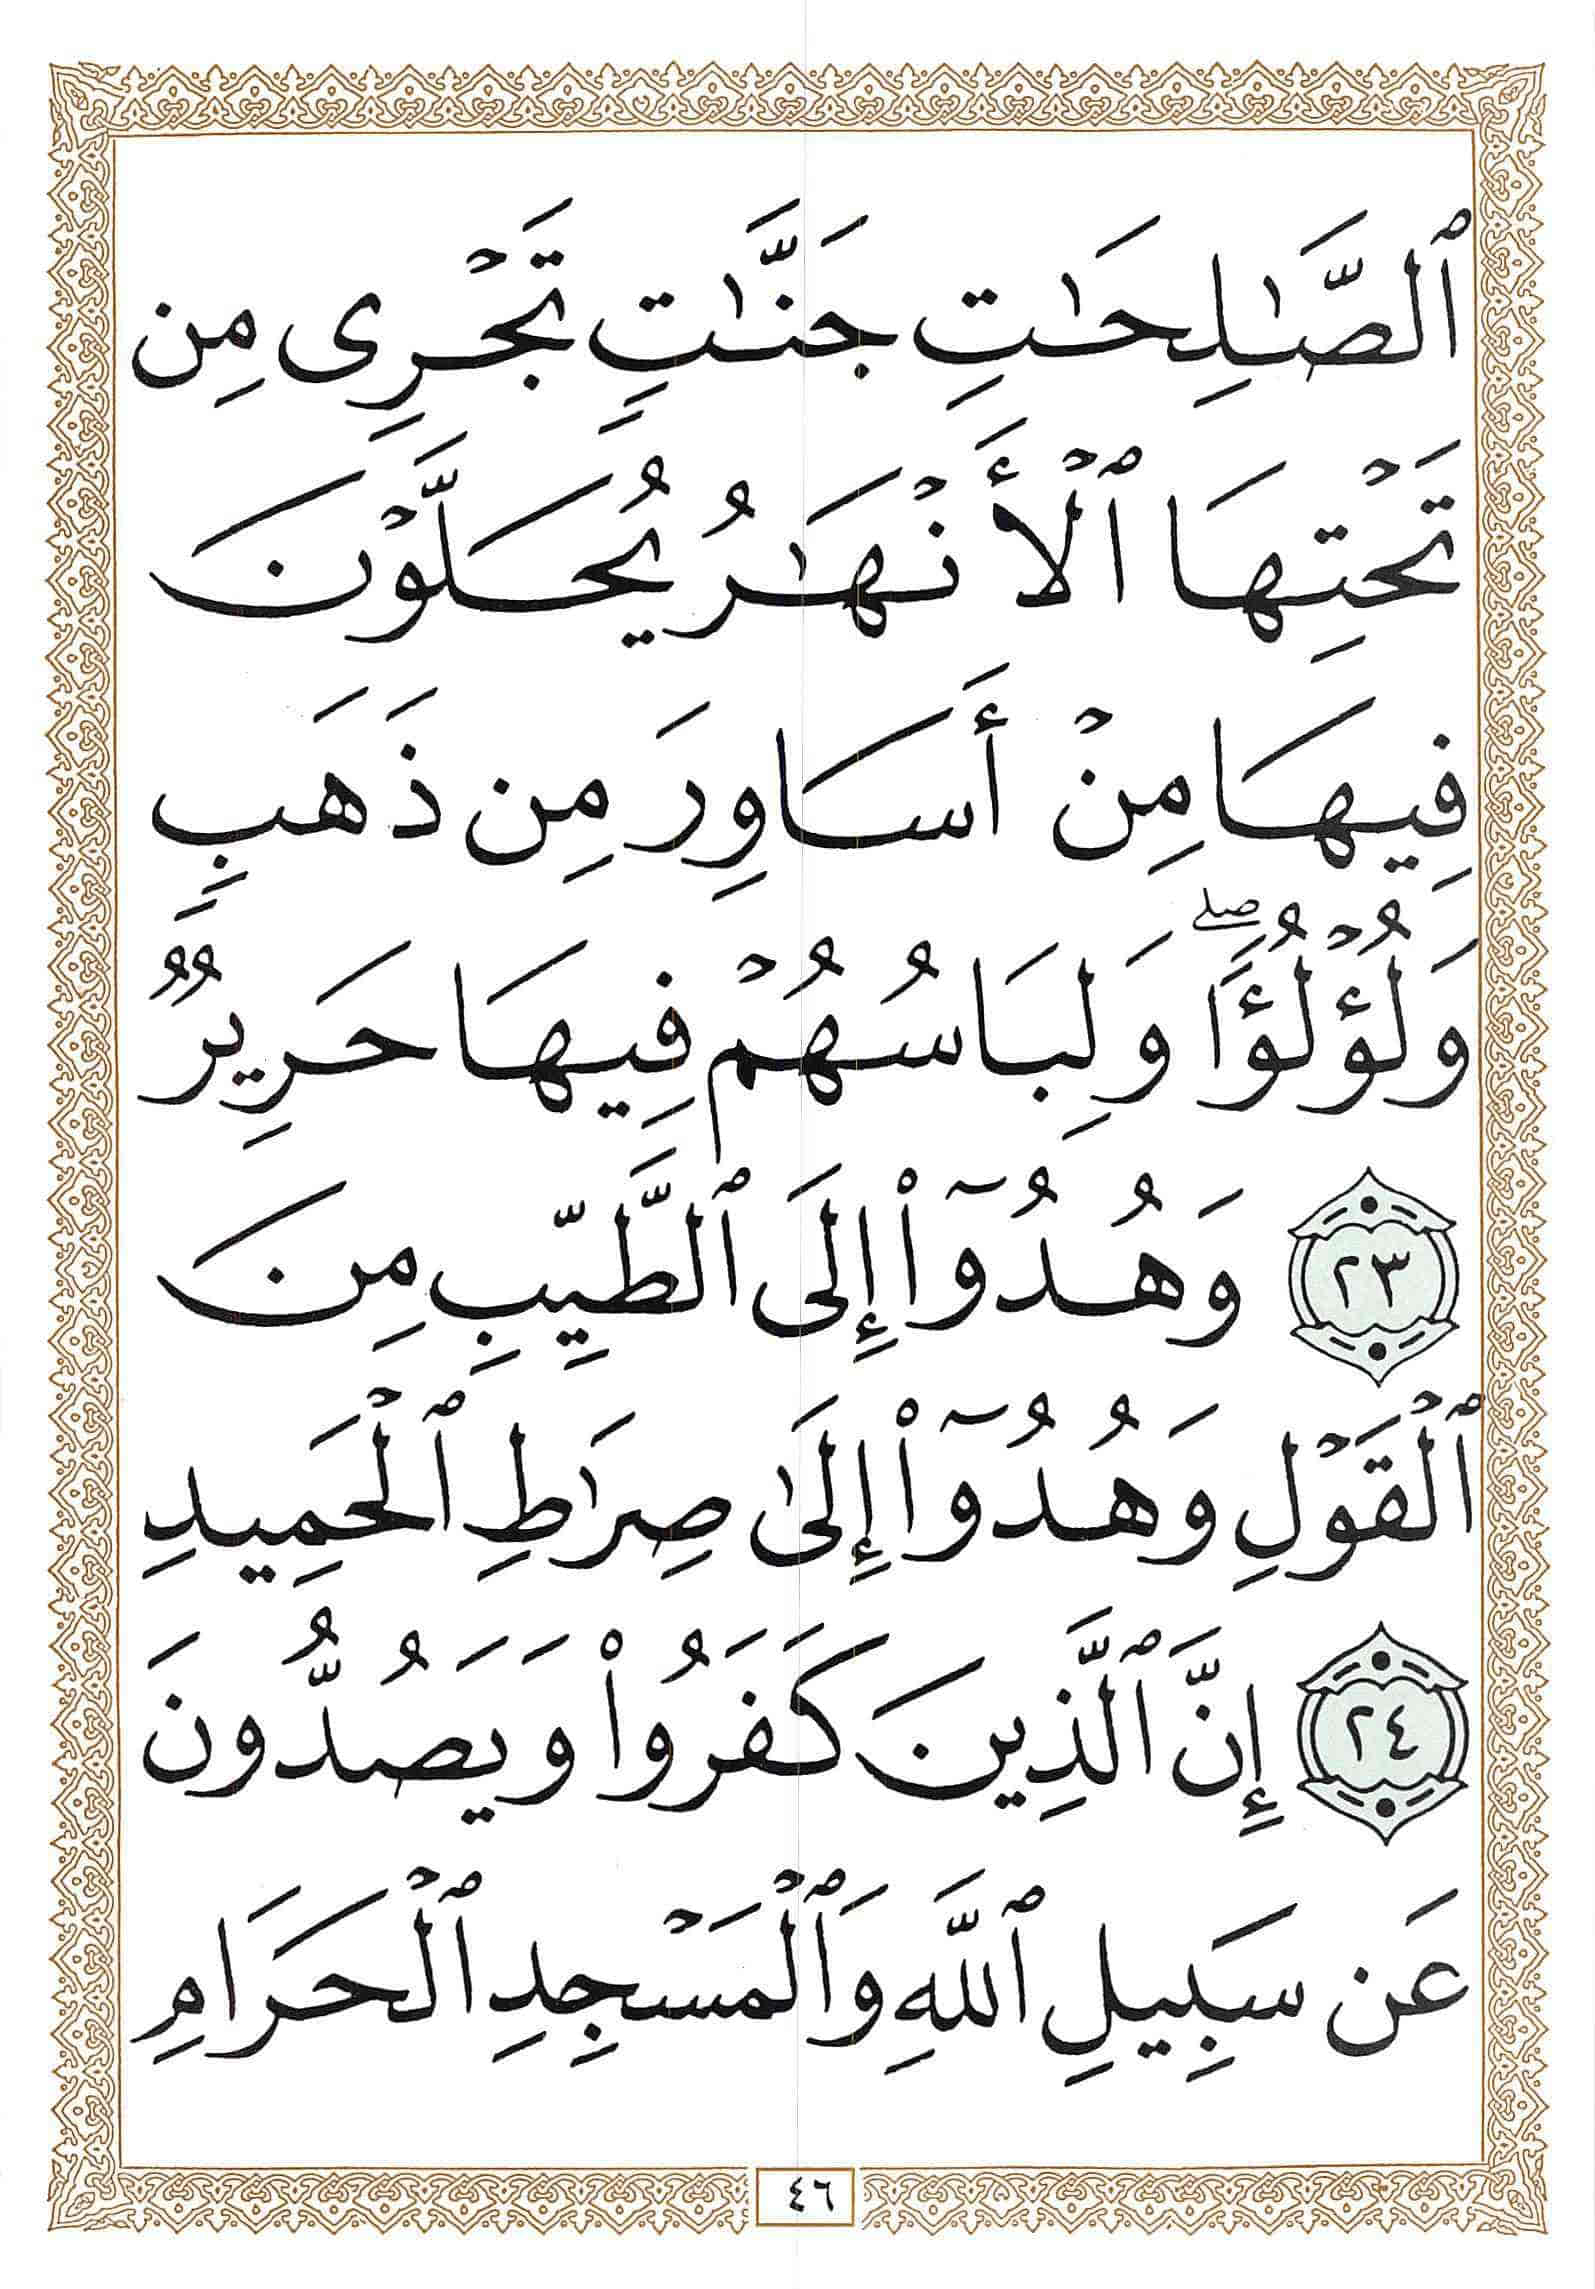 ٱلصَّٰلِحَٰتِ جَنَّٰتٍ تَجۡرِى مِن
تَحۡتِهَا ٱلۡأَنۡهَٰرُ يُحَلَّوۡنَ
فِيهَا مِنۡ أَسَاوِرَ مِن ذَهَبٍ
وَلُؤۡلُؤًاۖ وَلِبَاسُهُمۡ فِيهَا حَرِيرٌ
٢٣ وَهُدُوٓا۟ إِلَى ٱلطَّيِّبِ مِنَ
ٱلۡقَوۡلِ وَهُدُوٓا۟ إِلَىٰ صِرَٰطِ ٱلۡحَمِيدِ
٢٤ إِنَّ ٱلَّذِينَ كَفَرُوا۟ وَيَصُدُّونَ
عَن سَبِيلِ ٱللَّهِ وَٱلۡمَسۡجِدِ ٱلۡحَرَامِ
٤٦